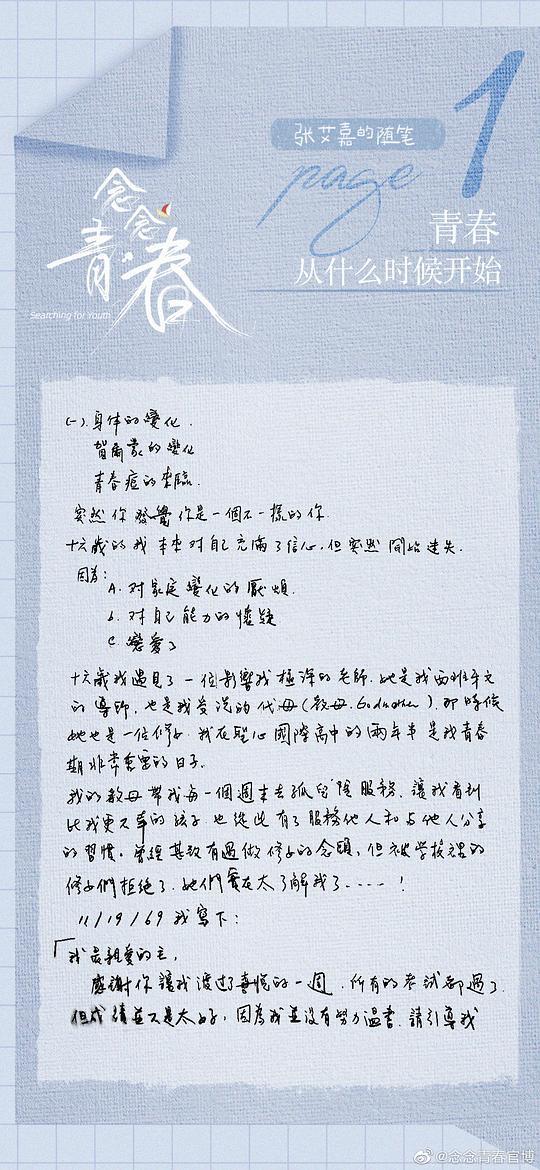 张艾嘉的随笔
page 1
青春
从什么时候开始
念念
青春
Searching for Youth
(一).身体的變化.
賀爾蒙的變化
青春痘的來臨.
突然你發覺你是一個不一樣的你.
十六歲的我本來對自己充滿了信心,但突然開始迷失.
因為:
A. 对家庭變化的厭煩.
b. 对自己能力的懷疑
C. 戀愛了
十六歲我遇見了一位影響我極深的老師.她是我西班牙文
的導師,也是我受洗的代母(教母.Godmother).那時候
她也是一位修女.我在聖心國際高中的兩年半是我青春
期非常重要的日子.
我的教母帶我每一個週末去孤兒院服務.讓我看到
比我更不幸的孩子也從此有了服務他人和与他人分享
的習慣.曾經甚致有過做修女的念頭,但被学校裡的
修女們拒絕了.她們實在太了解我了.....!
11/19/69 我寫下:
「我最親愛的主,
感謝你讓我渡过了喜悅的一週.所有的考試都過了
但成績並不是太好,因為我並沒有努力溫書.請引導我
@念念青春官博